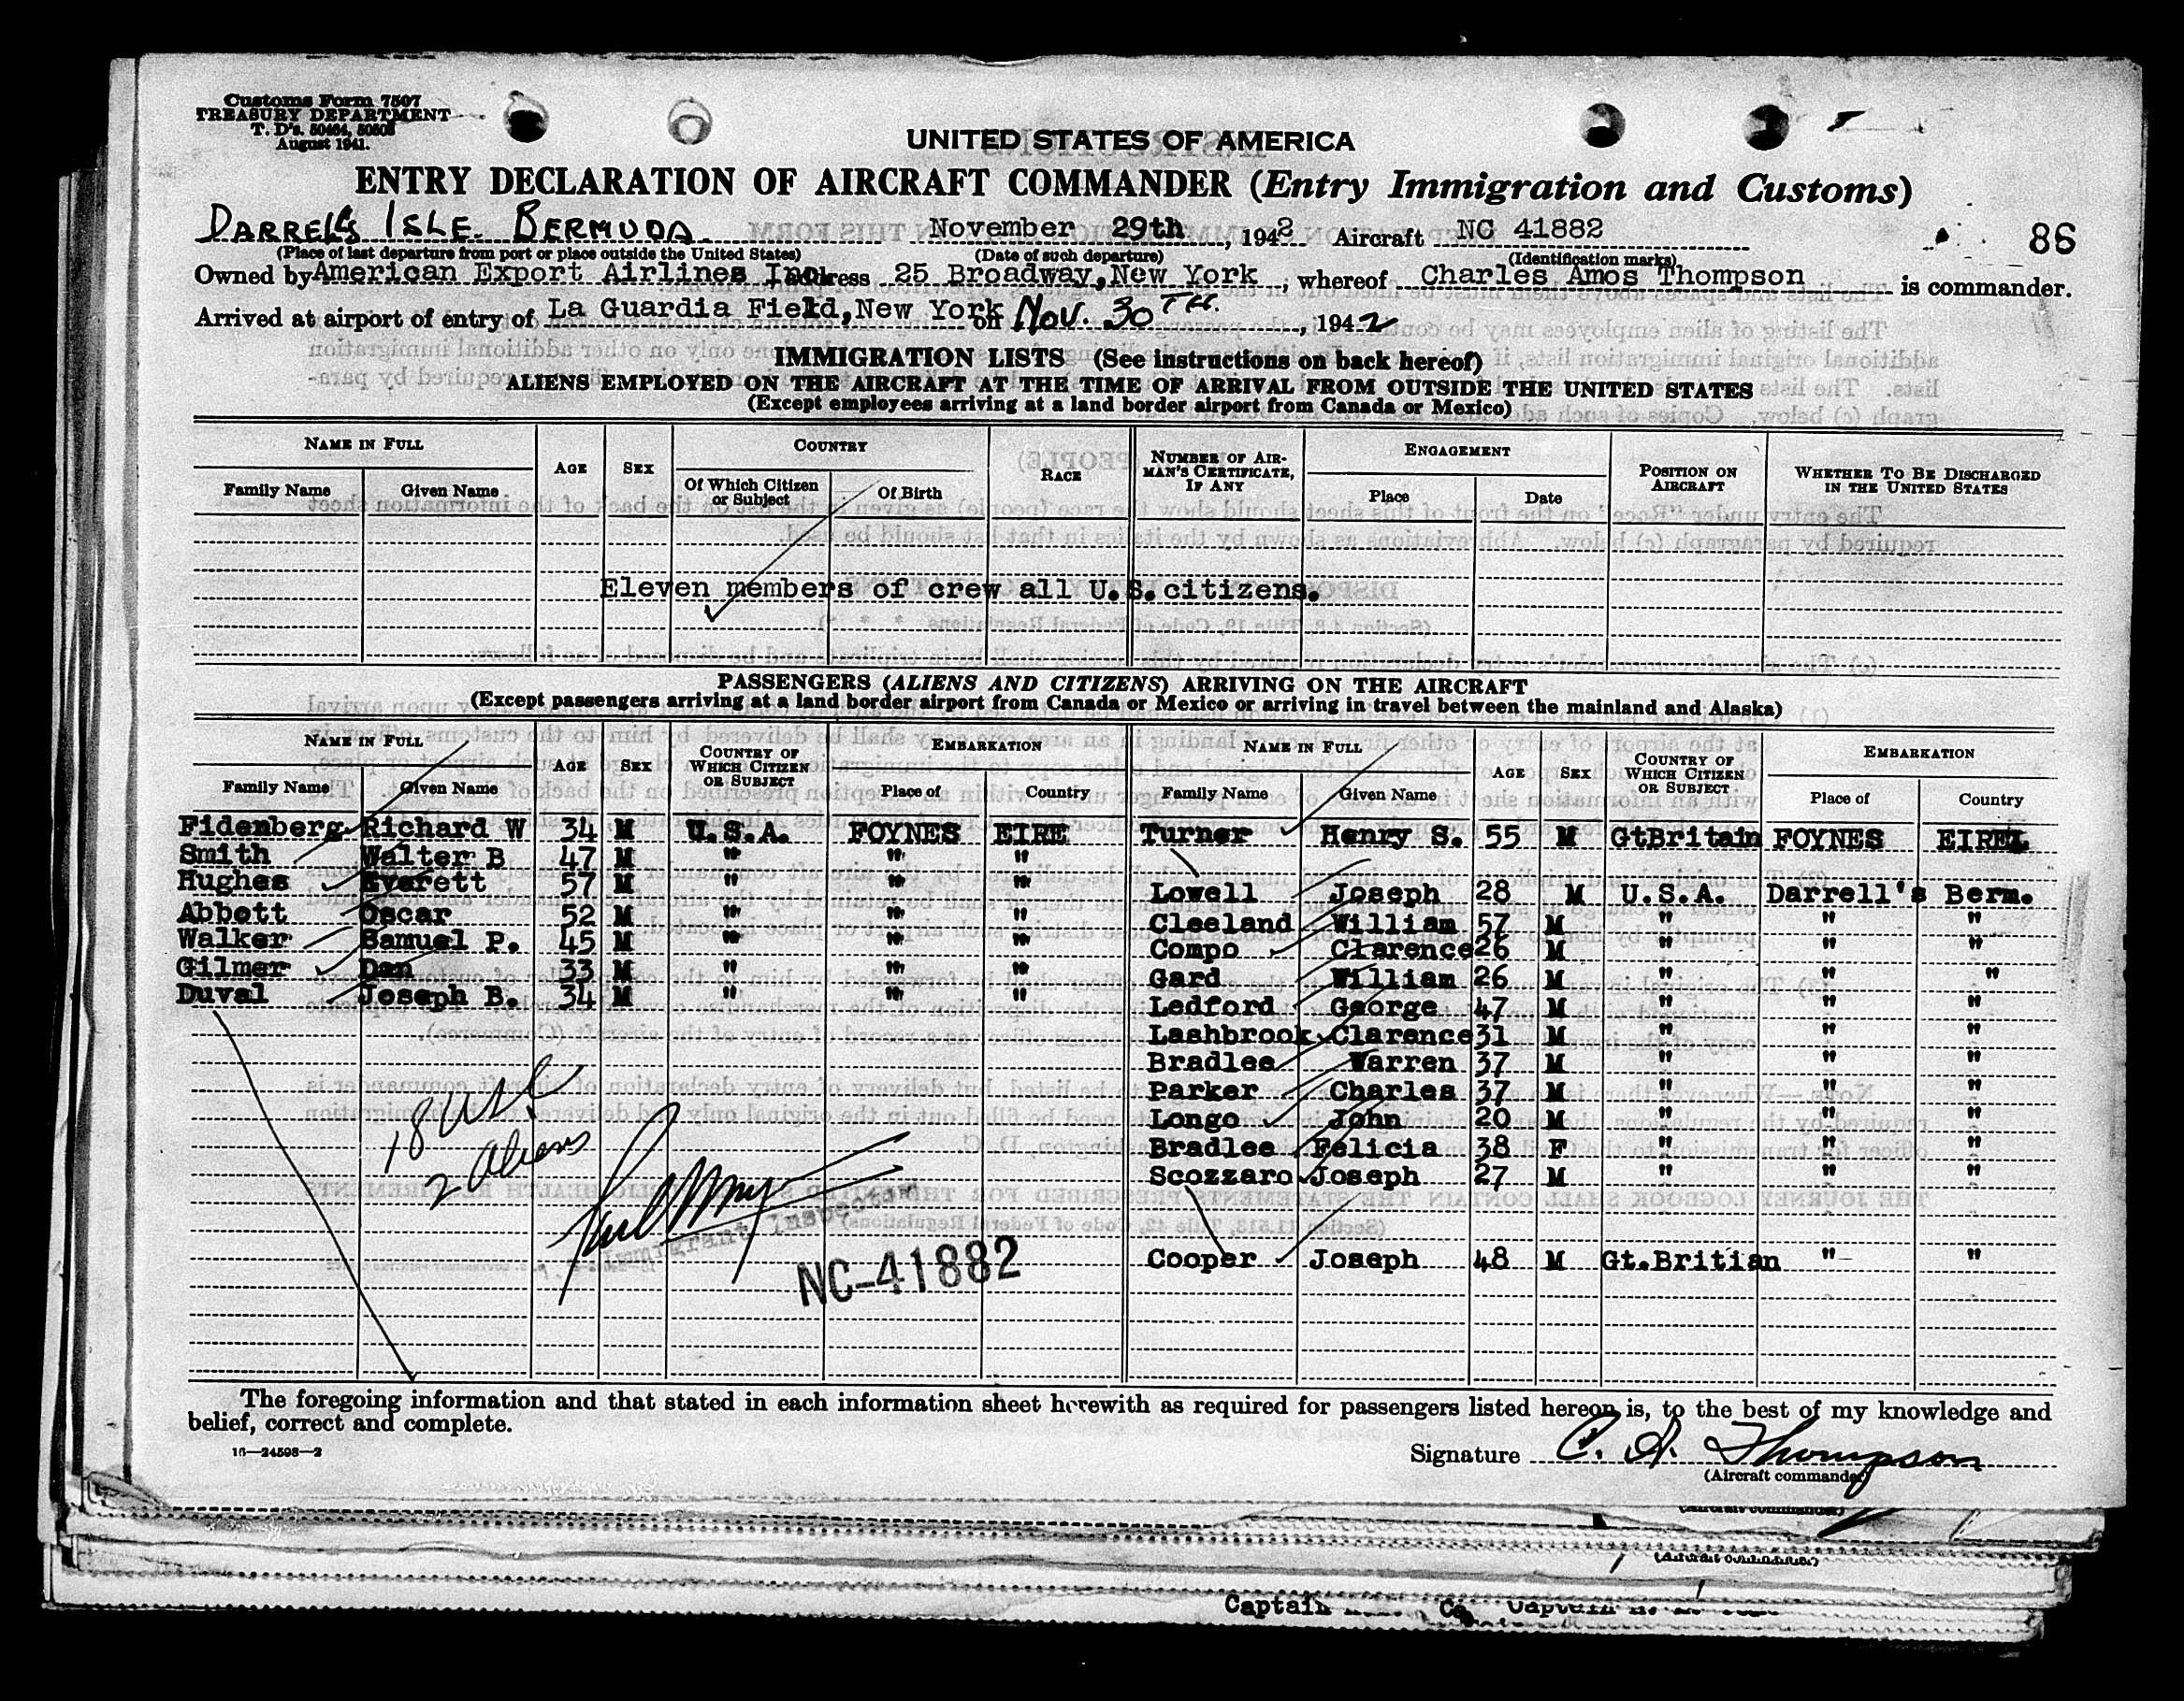 Customs Form 7507
TREASURY DEPARTMENT
T. D's. 50464, 50503
August 1941.
UNITED STATES OF AMERICA
ENTRY DECLARATION OF AIRCRAFT COMMANDER (Entry Immigration and Customs)
DARRELL'S ISLE. BERMUDA November 29th, 1942 Aircraft NC 41882
86
(Place of last departure from port or place outside the United States) (Date of such departure) (Identification marks)
Owned by American Export Airlines Inc. address 25 Broadway, New York, whereof Charles Amos Thompson is commander.
Arrived at airport of entry of La Guardia Field, New York on Nov. 30TH., 1942
IMMIGRATION LISTS (See instructions on back hereof)
ALIENS EMPLOYED ON THE AIRCRAFT AT THE TIME OF ARRIVAL FROM OUTSIDE THE UNITED STATES
(Except employees arriving at a land border airport from Canada or Mexico)
NAME IN FULL AGE SEX COUNTRY RACE NUMBER OF AIRMAN'S CERTIFICATE, IF ANY ENGAGEMENT POSITION ON AIRCRAFT WHETHER TO BE DISCHARGED IN THE UNITED STATES
Family Name Given Name Of Which Citizen or Subject Of Birth Place Date
Eleven members of crew all U.S.citizens.
PASSENGERS (ALIENS AND CITIZENS) ARRIVING ON THE AIRCRAFT
(Except passengers arriving at a land border airport from Canada or Mexico or arriving in travel between the mainland and Alaska)
NAME IN FULL AGE SEX COUNTRY OF WHICH CITIZEN OR SUBJECT EMBARKATION NAME IN FULL AGE SEX COUNTRY OF WHICH CITIZEN OR SUBJECT EMBARKATION
Family Name Given Name Place of Country Family Name Given Name Place of Country
Fidenberg Richard W 34 M U.S.A. FOYNES EIRE
Smith Walter B 47 M " " "
Hughes Everett 57 M " " "
Abbott Oscar 52 M " " "
Walker Samuel P. 45 M " " "
Gilmer Dan 33 M " " "
Duval Joseph B. 34 M " " "
18 USC
2 Aliens
Immigrant Inspector
NC-41882
Turner Henry S. 55 M GtBritain FOYNES EIRE
Lowell Joseph 28 M U.S.A. Darrell's Berm.
Cleeland William 57 M " " "
Compo Clarence 26 M " " "
Gard William 26 M " " "
Ledford George 47 M " " "
Lashbrook Clarence 31 M " " "
Bradlee Warren 37 M " " "
Parker Charles 37 M " " "
Longo John 20 M " " "
Bradlee Felicia 38 F " " "
Scozzaro Joseph 27 M " " "
Cooper Joseph 48 M Gt.Britian " "
The foregoing information and that stated in each information sheet herewith as required for passengers listed hereon is, to the best of my knowledge and
belief, correct and complete.
16—24598—2
Signature C. A. Thompson
(Aircraft commander)
(Aircraft commander)
(Aircraft commander)
Captain